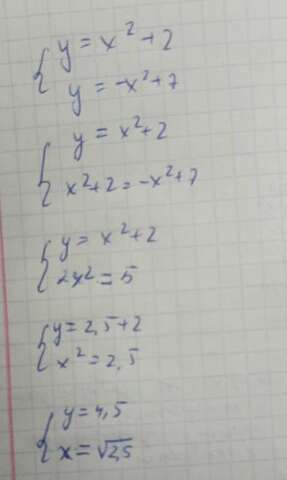 y = x² + 2
y = -x² + 7
y = x² + 2
x² + 2 = -x² + 7
y = x² + 2
2x² = 5
y = 2,5 + 2
x² = 2,5
y = 4,5
x = √2,5